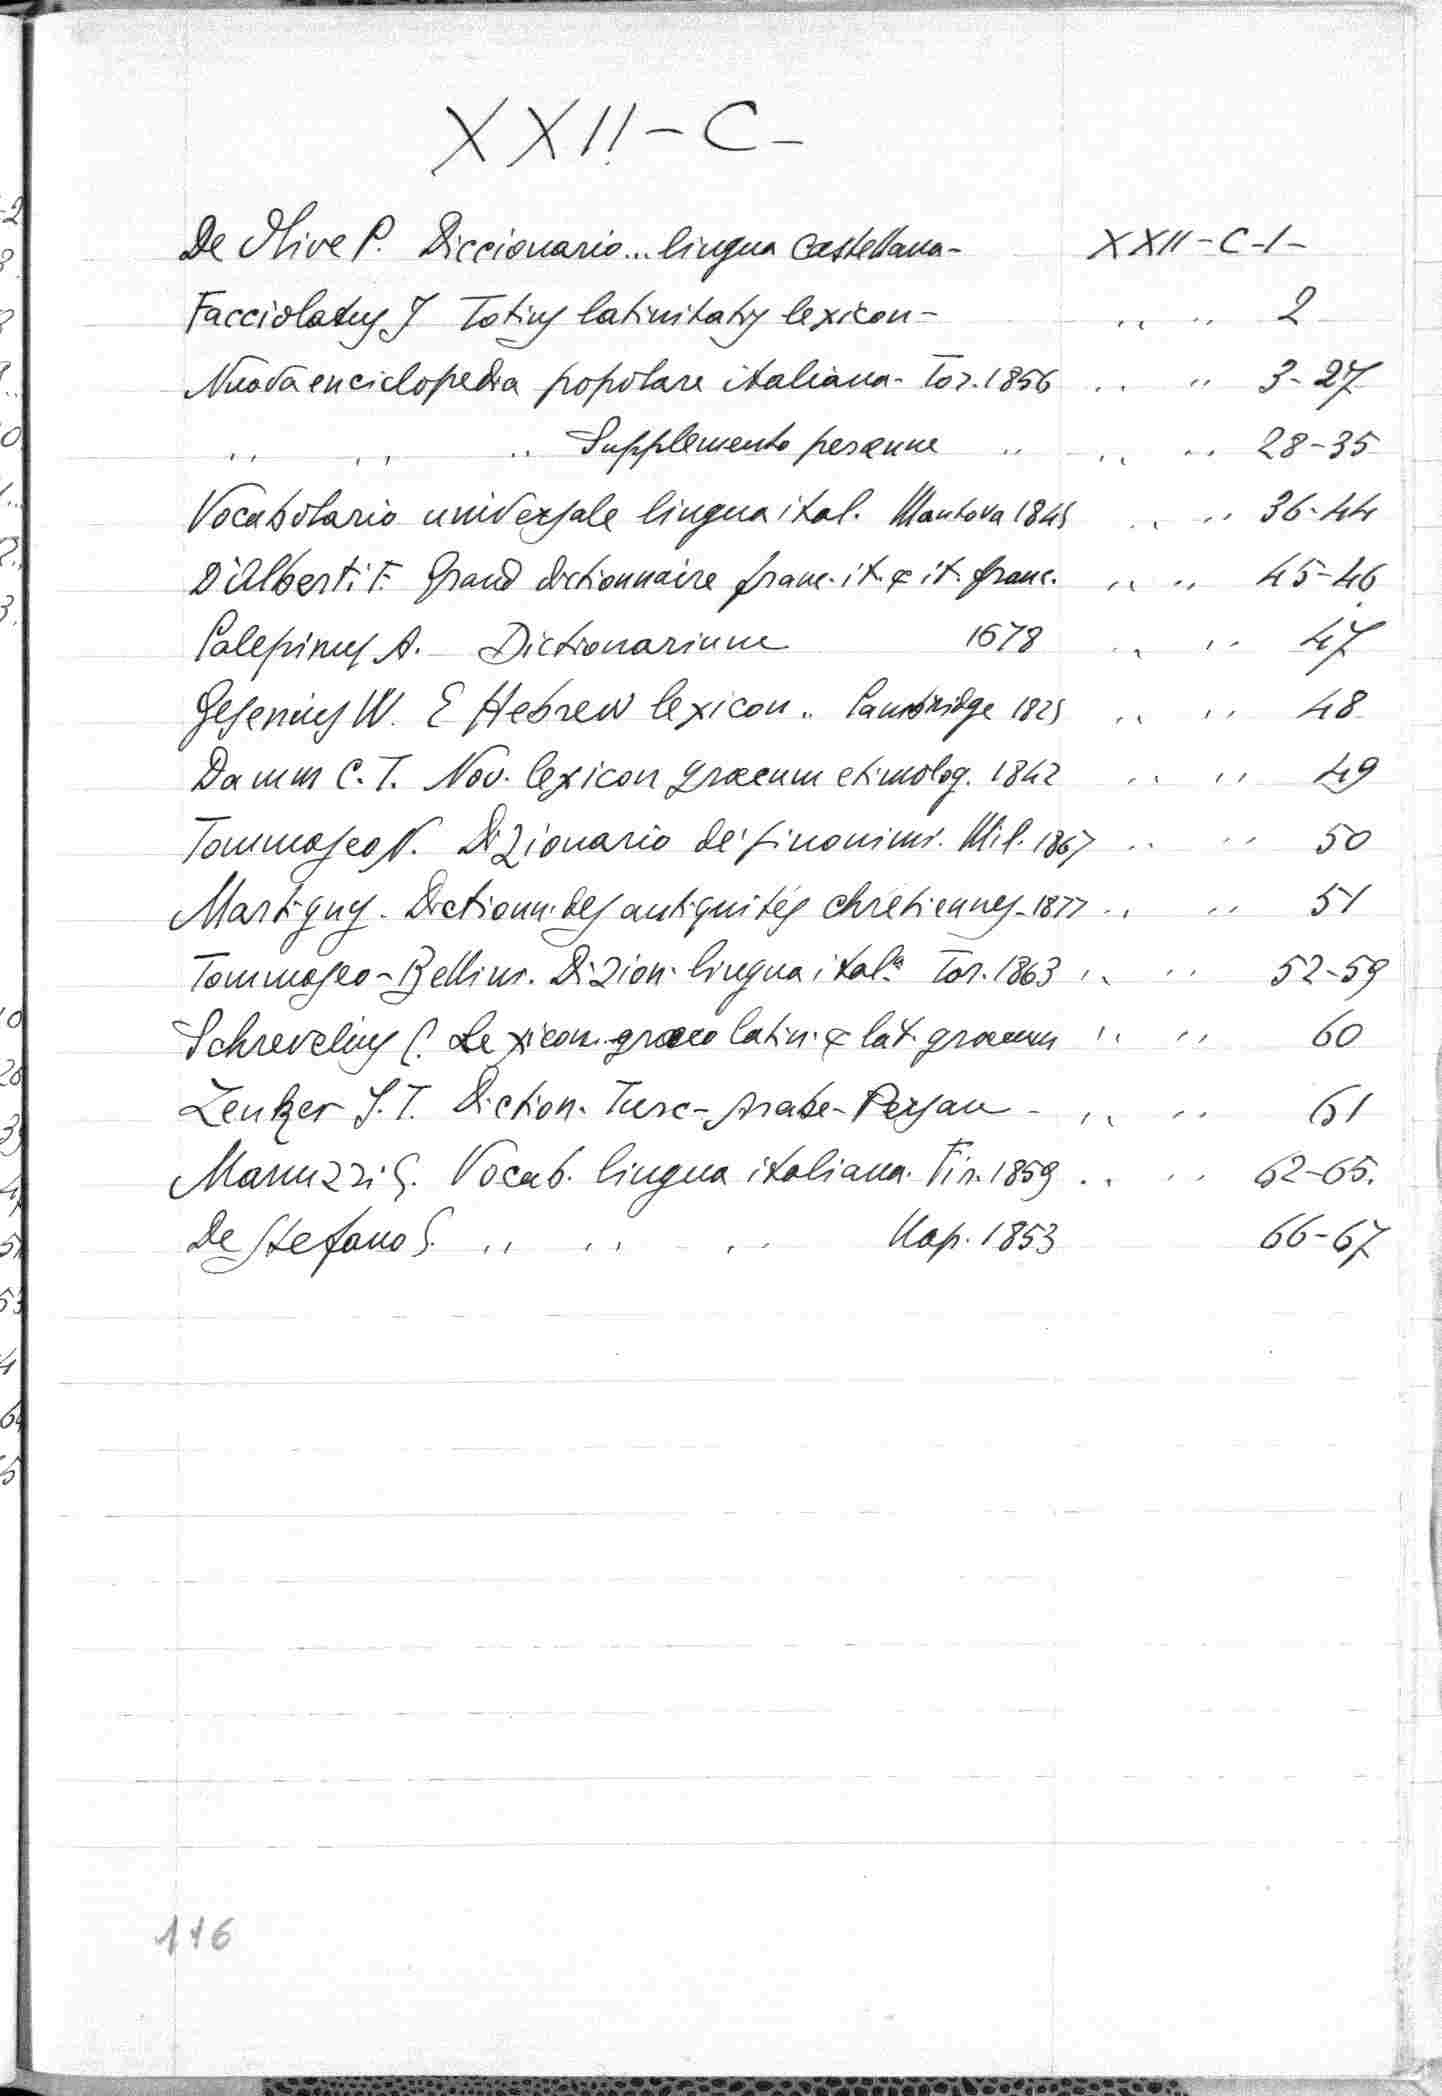 XXII - C -
De Olive P. Diccionario... lingua castellana - XXII - C - 1 -
Facciolatus J Totius latinitatis lexicon - " " 2
Nuova enciclopedia popolare italiana - Tor. 1856 " " 3-27
" " " Supplemento perenne " " " 28-35
Vocabolario universale lingua ital. Mantova 1845 " " 36-44
D'Alberti F. Grand dictionnaire franc. it. & it. franc. " " 45-46
Calepinus A. Dictionarium 1678 " " 47
Gesenius W. E Hebrew lexicon .. Cambridge 1825 " " 48
Damm C. T. Nov. lexicon graecum etimolog. 1842 " " 49
Tommaseo N. Dizionario dei sinonimi. Mil. 1867 " " 50
Martigny. Dictionn. des antiquités chrétiennes - 1877 " " 51
Tommaseo - Bellini. Dizion. lingua ital.na Tor. 1863 " " 52-59
Schrevelius C. Lexicon graeco latin. & lat. graecum " " 60
Zenker J. T. Diction. Turc - Arabe - Persan - " " 61
Manuzzi G. Vocab. lingua italiana. Fir. 1859 " " 62-65.
De Stefano G. " " " Nap. 1853 66-67
116